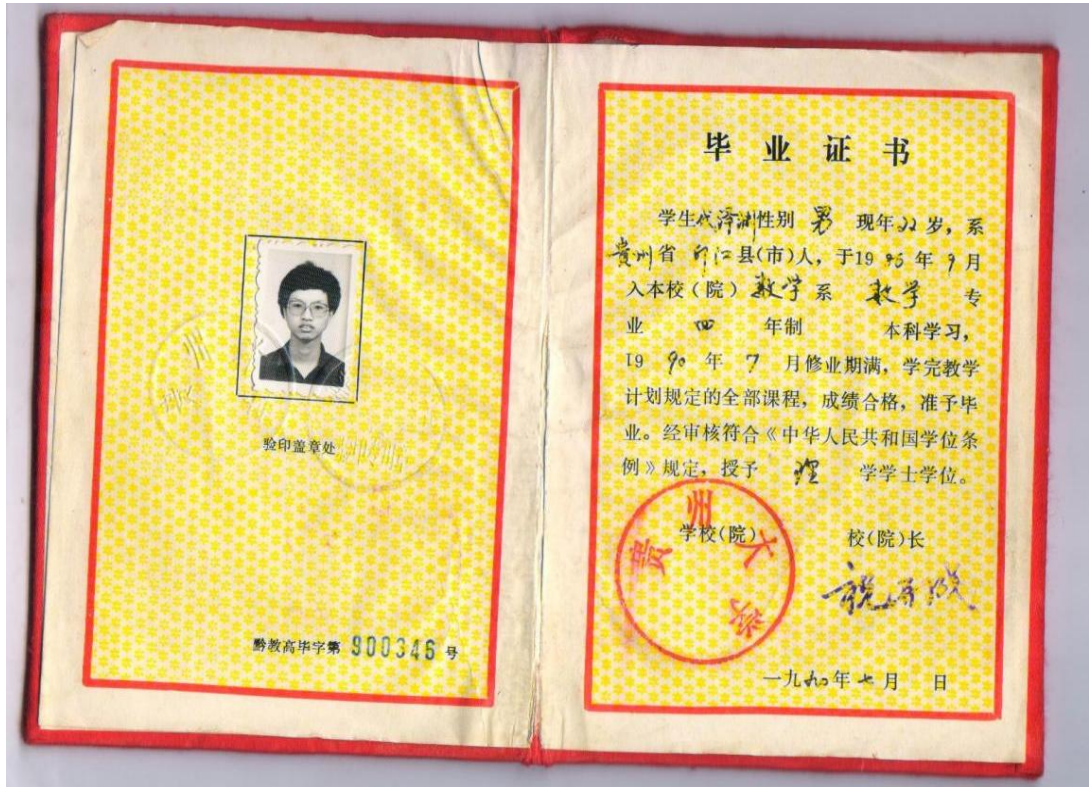 验印盖章处
黔教高毕字第 900346 号
毕业证书
学生代泽洲性别 男 现年22岁，系
贵州省印江县(市)人，于1986年9月
入本校(院)数学系 数学 专
业 四 年制 本科学习，
1990年7月修业期满，学完教学
计划规定的全部课程，成绩合格，准予毕
业。经审核符合《中华人民共和国学位条
例》规定，授予 理 学学士学位。
学校(院) 校(院)长
贵州大学
一九九〇年七月 日